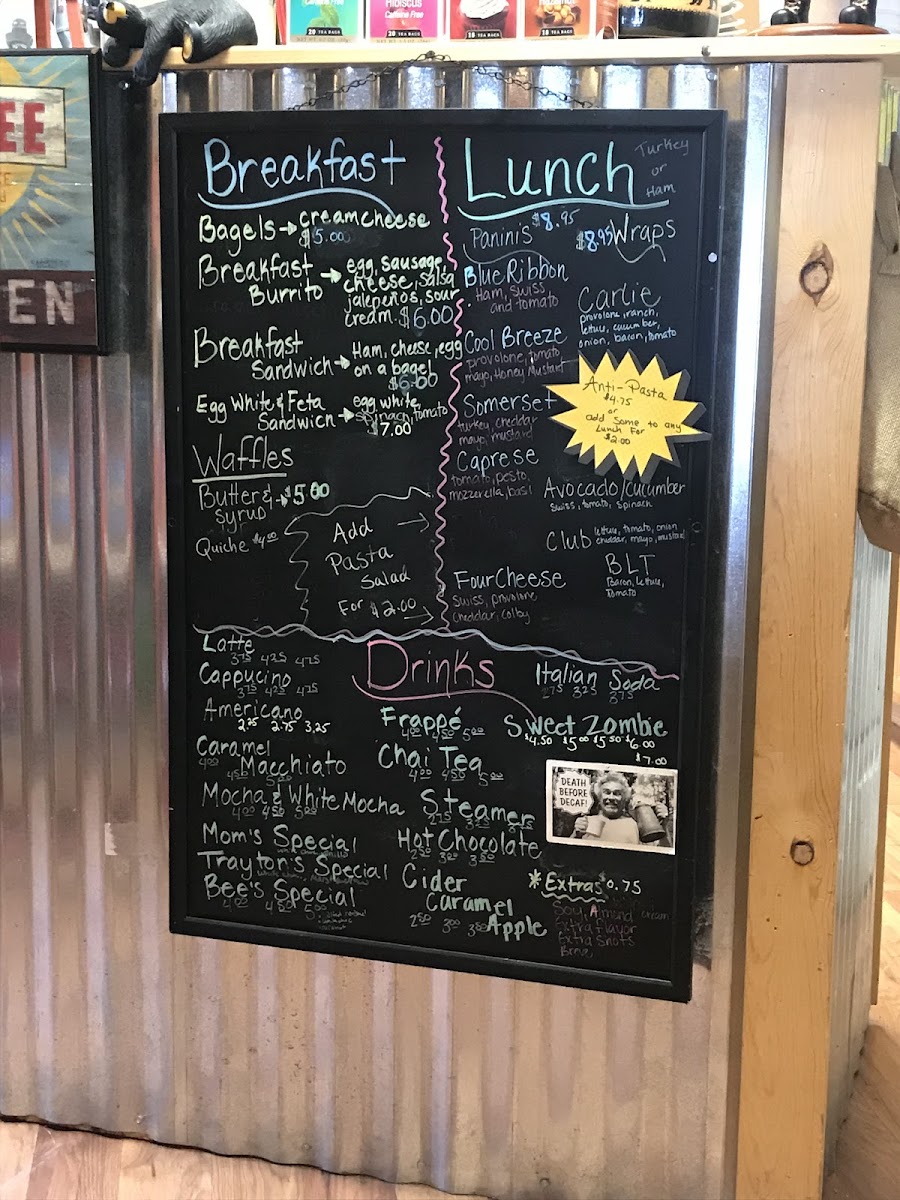 HIBISCUS
Caffeine Free
20 TEA BAGS
20 TEA BAGS
18 TEA BAGS
18 TEA BAGS
EE
EN
Breakfast
Bagels → cream cheese
$5.00
Breakfast Burrito → egg, sausage,
cheese, salsa
jalepeños, sour
cream. $6.00
Breakfast
Sandwich → Ham, cheese, egg
on a bagel
$6.00
Egg White & Feta
Sandwich → egg white,
spinach, tomato
$7.00
Waffles
Butter &
Syrup → $5.00
Quiche $4.00
Add
Pasta
Salad
For $2.00
Lunch
Turkey
or
Ham
Panini's $8.95
Blue Ribbon
Ham, swiss
and tomato
Cool Breeze
provolone, tomato,
mayo, Honey Mustard
Somerset
turkey, cheddar
mayo, mustard
Caprese
tomato, pesto,
mozzerella, basil
Four Cheese
Swiss, provolone
cheddar, colby
$8.95 Wraps
Carlie
provolone, ranch,
lettuce, cucumber,
onion, bacon, tomato
Anti-Pasta
$4.75
or
add some to any
Lunch For
$2.00
Avocado/Cucumber
Swiss, tomato, spinach
Club lettuce, tomato, onion
cheddar, mayo, mustard
BLT
Bacon, Lettuce,
Tomato
Drinks
Latte
3.75 4.25 4.75
Cappucino
3.75 4.25 4.75
Americano
2.25 2.75 3.25
Caramel
Macchiato
4.00 4.50 5.00
Mocha & White Mocha
4.00 4.50 5.00
Mom's Special
Trayton's Special
Bee's Special
4.00 4.50 5.00
Frappé
4.00 4.50 5.00
Chai Tea
4.00 4.50 5.00
Steamers
2.75 3.25 3.75
Hot Chocolate
2.50 3.00 3.50
Cider
Caramel
Apple
2.50 3.00 3.50
Italian Soda
2.75 3.25 3.75
Sweet Zombie
$4.50 $5.00 $5.50 $6.00
$7.00
DEATH
BEFORE
DECAF!
*Extras $0.75
Soy, Almond cream
Extra flavor
Extra Shots
Breve